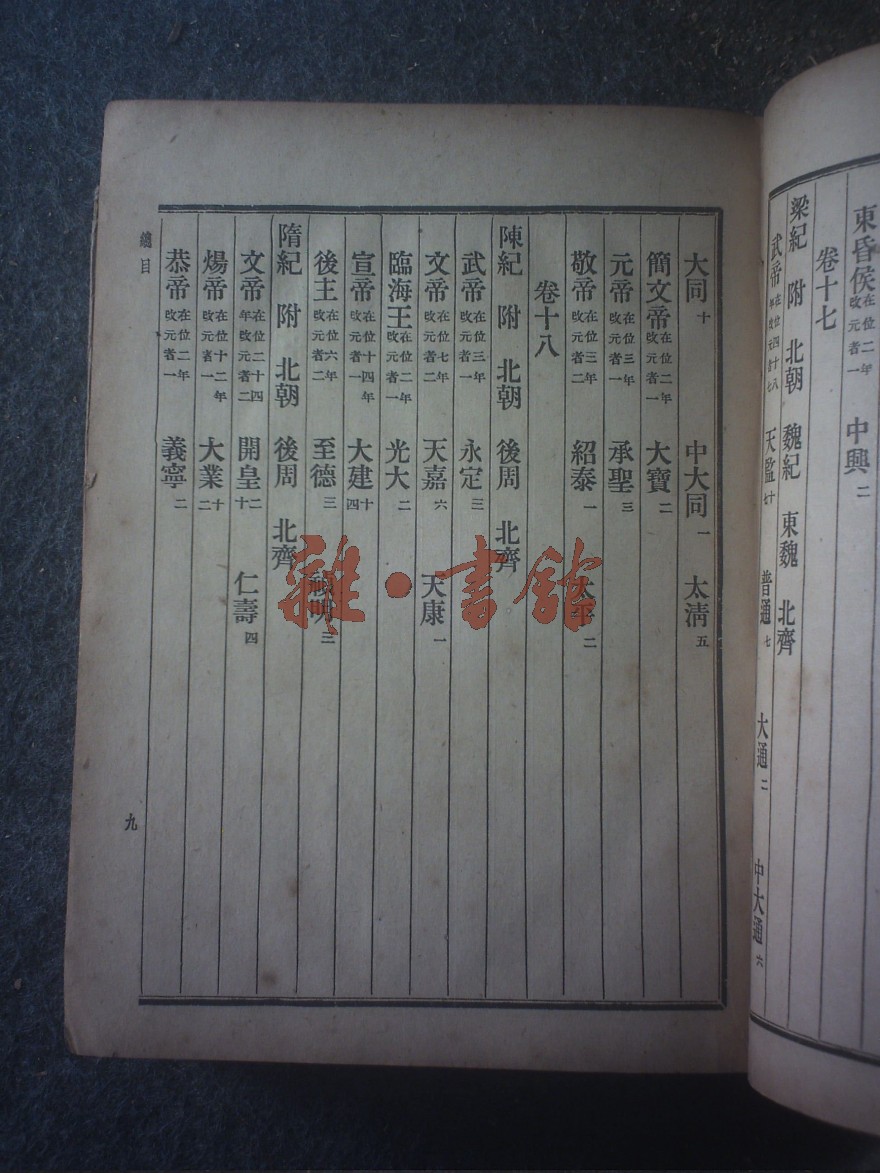 東昏侯 在位二年 改元者一 中興 二
卷十七
梁紀 附 北朝 魏紀 東魏 北齊
武帝 在位四十八年 改元者七 天監 十七 普通 七 大通 二 中大通 六
大同 十 中大同 一 太淸 五
簡文帝 在位二年 改元者一 大寶 二
元帝 在位三年 改元者一 承聖 三
敬帝 在位三年 改元者二 紹泰 一 太平 二
卷十八
陳紀 附 北朝 後周 北齊
武帝 在位三年 改元者一 永定 三
文帝 在位七年 改元者二 天嘉 六 天康 一
臨海王 在位二年 改元者一 光大 二
宣帝 在位十四年 改元者一 大建 十四
後主 在位六年 改元者二 至德 三 禎明 三
隋紀 附 北朝 後周 北齊
文帝 在位二十四年 改元者二 開皇 二十 仁壽 四
煬帝 在位十二年 改元者一 大業 十二
恭帝 在位二年 改元者一 義寧 二
總目
九
雜·書館